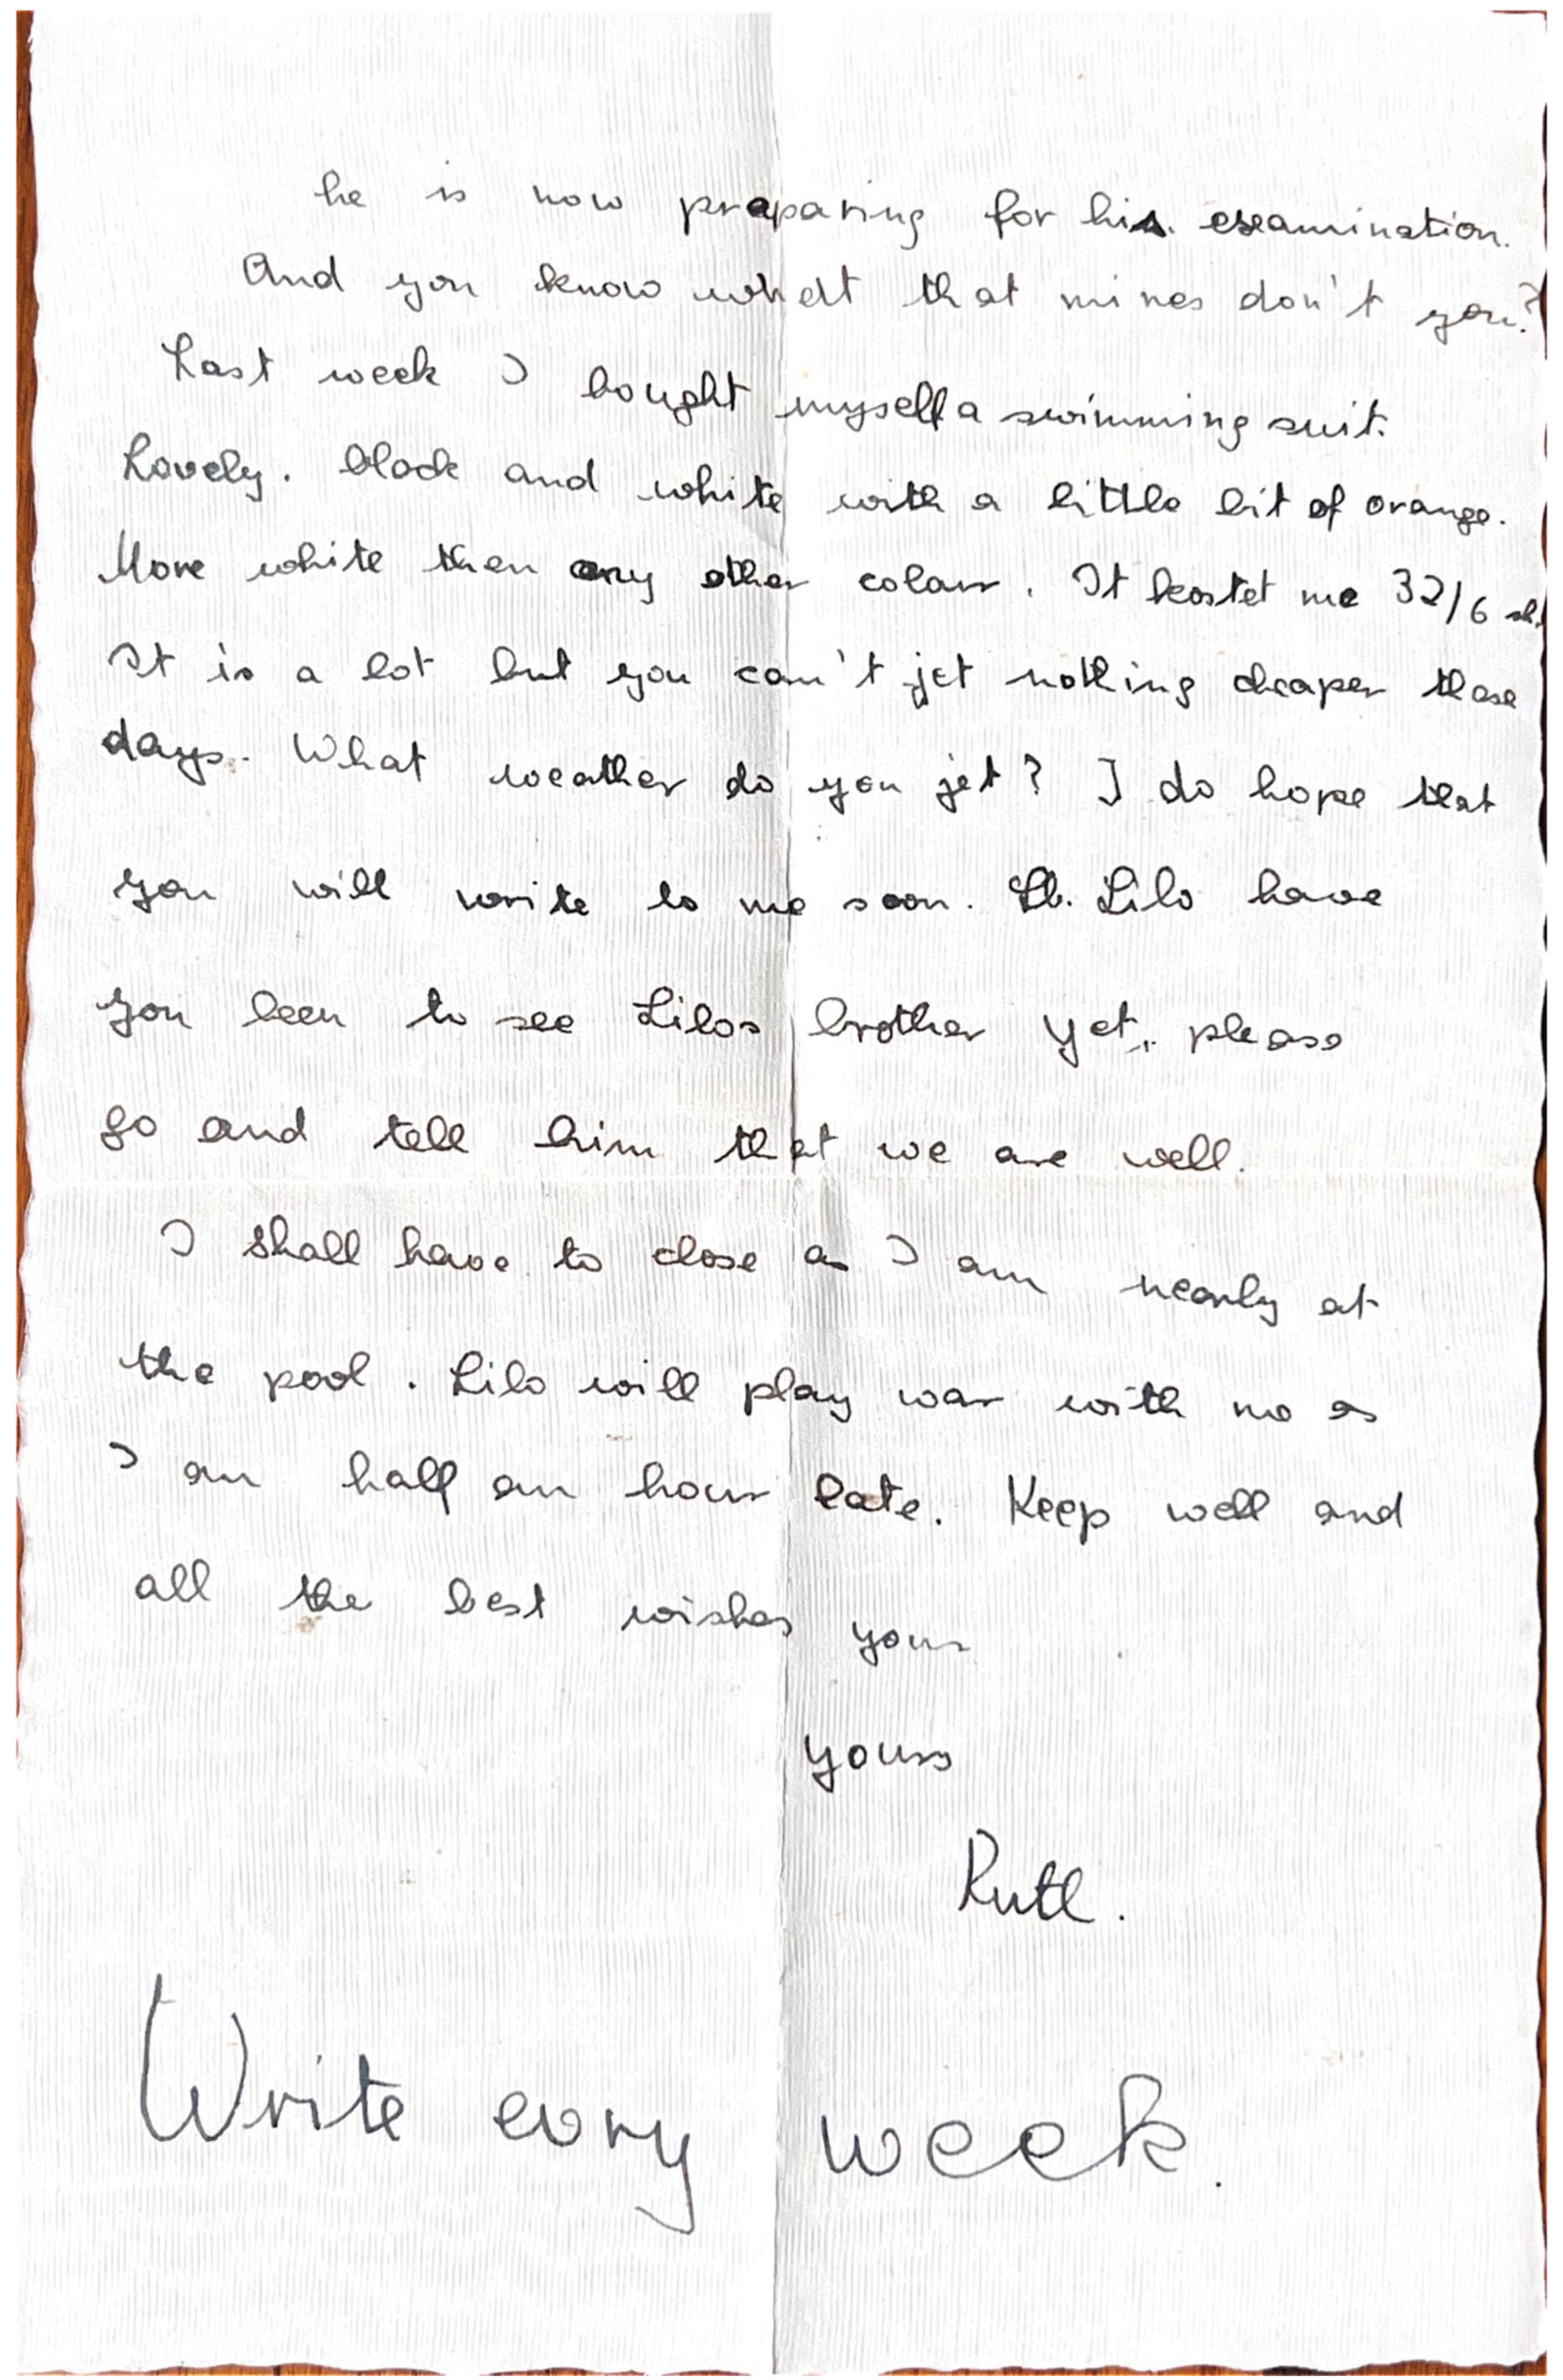 he is now praparing for his examination.
And you know whelt that mines don't you?
Last week I bought myself a swimming suit.
Lovely. black and white with a little bit of orange.
More white then any other colour. It kostet me 32/6 sh.
It is a lot but you can't jet nothing cheaper these
days. What weather do you jet? I do hope that
you will write to me soon. Lb. Lilo have
you been to see Lilos brother yet, please
go and tell him that we are well.
I shall have to close as I am nearly at
the pool. Lilo will play war with me as
I am half an hour late. Keep well and
all the best wishes your
yours
Ruth.
Write evry week.